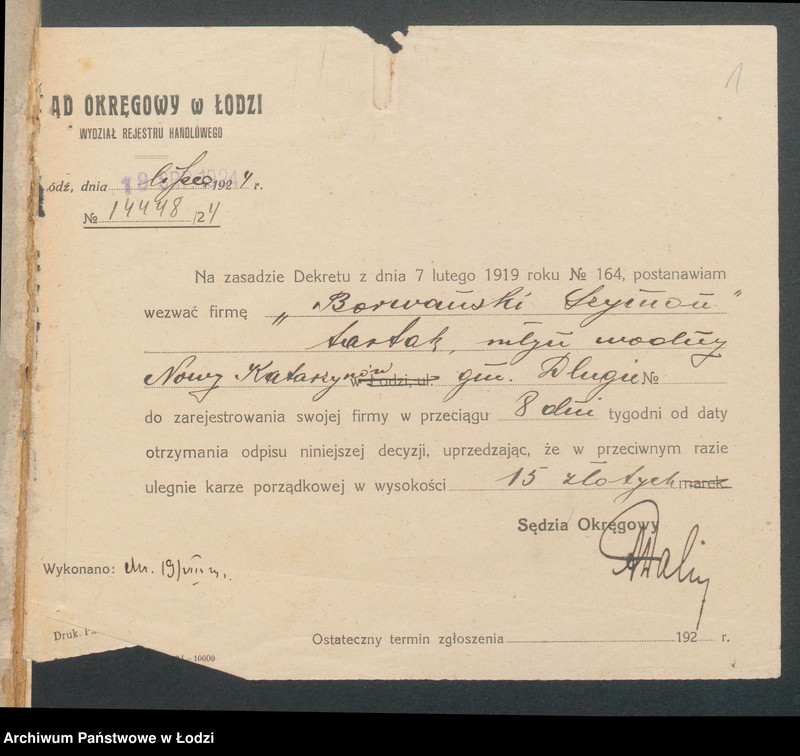 1
ĄD OKRĘGOWY w ŁODZI
WYDZIAŁ REJESTRU HANDLOWEGO
ódź, dnia 192 4 r.
№ 14448/24
Na zasadzie Dekretu z dnia 7 lutego 1919 roku № 164, postanawiam
wezwać firmę „Borwański Szymon"
tartak, młyn wodny
Nowy Katarzynów w Łodzi, ul. gm. Długie №
do zarejestrowania swojej firmy w przeciągu 8 dni tygodni od daty
otrzymania odpisu niniejszej decyzji, uprzedzając, że w przeciwnym razie
ulegnie karze porządkowej w wysokości 15 złotych marek.
Sędzia Okręgowy
Wykonano: dn. 19/VIII
Druk.
Ostateczny termin zgłoszenia 192 r.
10000
Archiwum Państwowe w Łodzi